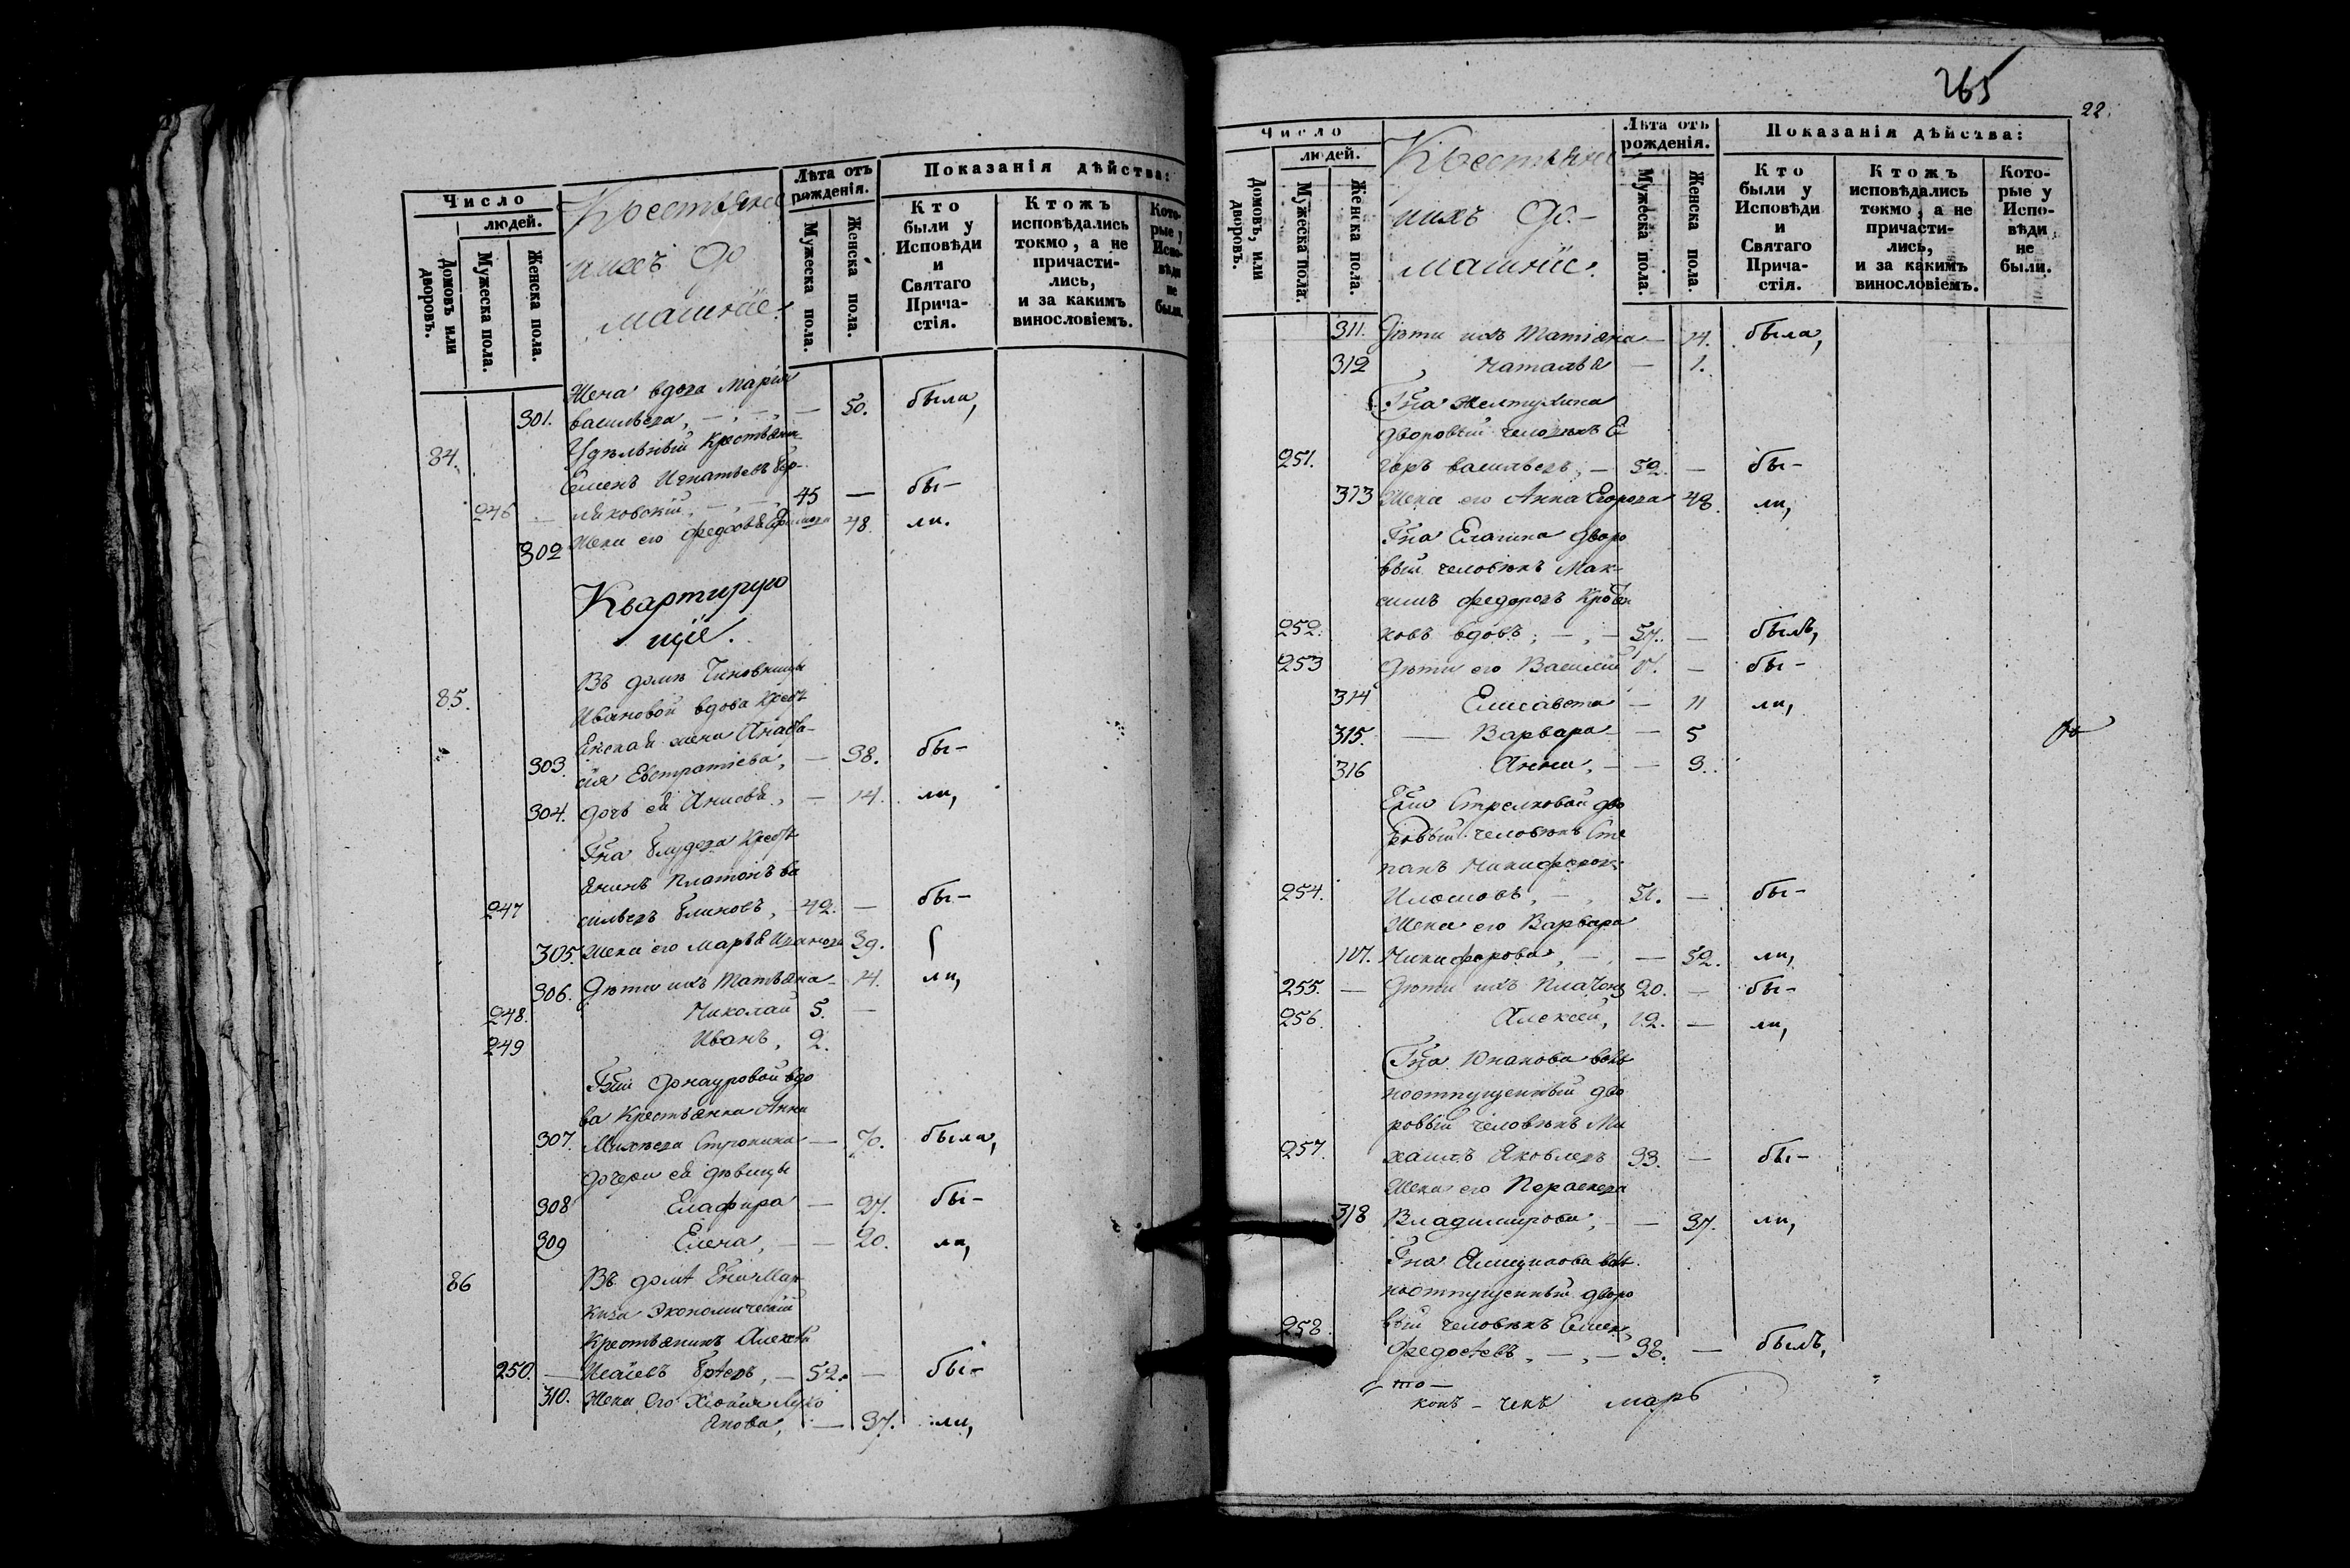 Число
людей.
Домовъ или дворовъ.
Мужеска пола.
Женска пола.
Крестьяне
нихъ До
машніе.
Лѣта отъ рожденія.
Мужеска пола.
Женска пола.
Показанія дѣйства:
Кто были у Исповѣди и Святаго Причастія.
Ктожъ исповѣдались токмо, а не причастились, и за какимъ винословіемъ.
Которые у Исповѣди не были.
Жена вдова Марія
301. васильева, — 50. была,
84. Удѣльный Крестьянинъ
Семенъ Игнатьевъ
246 — 45 — бы-
302 Жена его Федосья 48. ли.
Квартирую
щіе.
85. Въ домѣ Чиновницы
Ивановой вдова Крест
Анаста-
303. сія Евстратіева, — 38. бы-
304. дочь ея Анисья, — 14. ли,
Гна Блудова Крест
янинъ Платонъ ва
247 сильевъ Блиновъ, — 42. — бы-
305. Жена его Марья Иванова 39.
306. Дѣти ихъ Татьяна — 14. ли,
248. Николай 5. —
249 Иванъ, 2.
Гжи Донауровой вдо
ва Крестьянка Анна
307. Михѣева — 70. была,
дочери ея дѣвицы
308 Глафира — 27. бы-
309 Елена, — 20. ли,
86 Въ домѣ
Экономическій
Крестьянинъ Алексѣй
250. — 52. — бы-
310. Жена Его
— 37. ли,
265
22.
Число
людей.
Домовъ, или дворовъ.
Мужеска пола.
Женска пола.
Крестьяне
нихъ До-
машніе.
Лѣта отъ рожденія.
Мужеска пола.
Женска пола.
Показанія дѣйства:
Кто были у Исповѣди и Святаго Причастія.
Ктожъ исповѣдались токмо, а не причастились, и за какимъ винословіемъ.
Которые у Исповѣди не были.
311. Дѣти ихъ Татіяна — 14. была,
312 Наталья — 1.
Гна Желтухина
дворовый человѣкъ Е
251. горъ васильевъ, — 52. — бы-
313 Жена его Анна Егорова 48. ли,
Гна Елагина дворо
вый человѣкъ Мак-
симъ Федоровъ
252. ковъ вдовъ, — 57. — былъ,
253 Дѣти его Василій — бы-
314 Елисавета — 11 ли,
315. — Варвара — 5
316 Анна, — 3.
Гжи Стрелковой дво
ровый человѣкъ Сте
панъ Никифоровъ
254. 51. — бы-
Жена его Варвара
Никифорова, — 52. ли,
255. — Дѣти ихъ Платонъ 20. — бы-
256. Алексѣй, 12. — ли,
Гна Юнакова воль
ноотпущенный дво
ровый человѣкъ Ми
257. хаилъ Яковлевъ 33. — бы-
Жена его Параскева
318 Владимирова, — 37. ли,
Гна воль
ноотпущенный дворо
258. вый человѣкъ Семенъ
Федосѣевъ, — 38. — былъ,